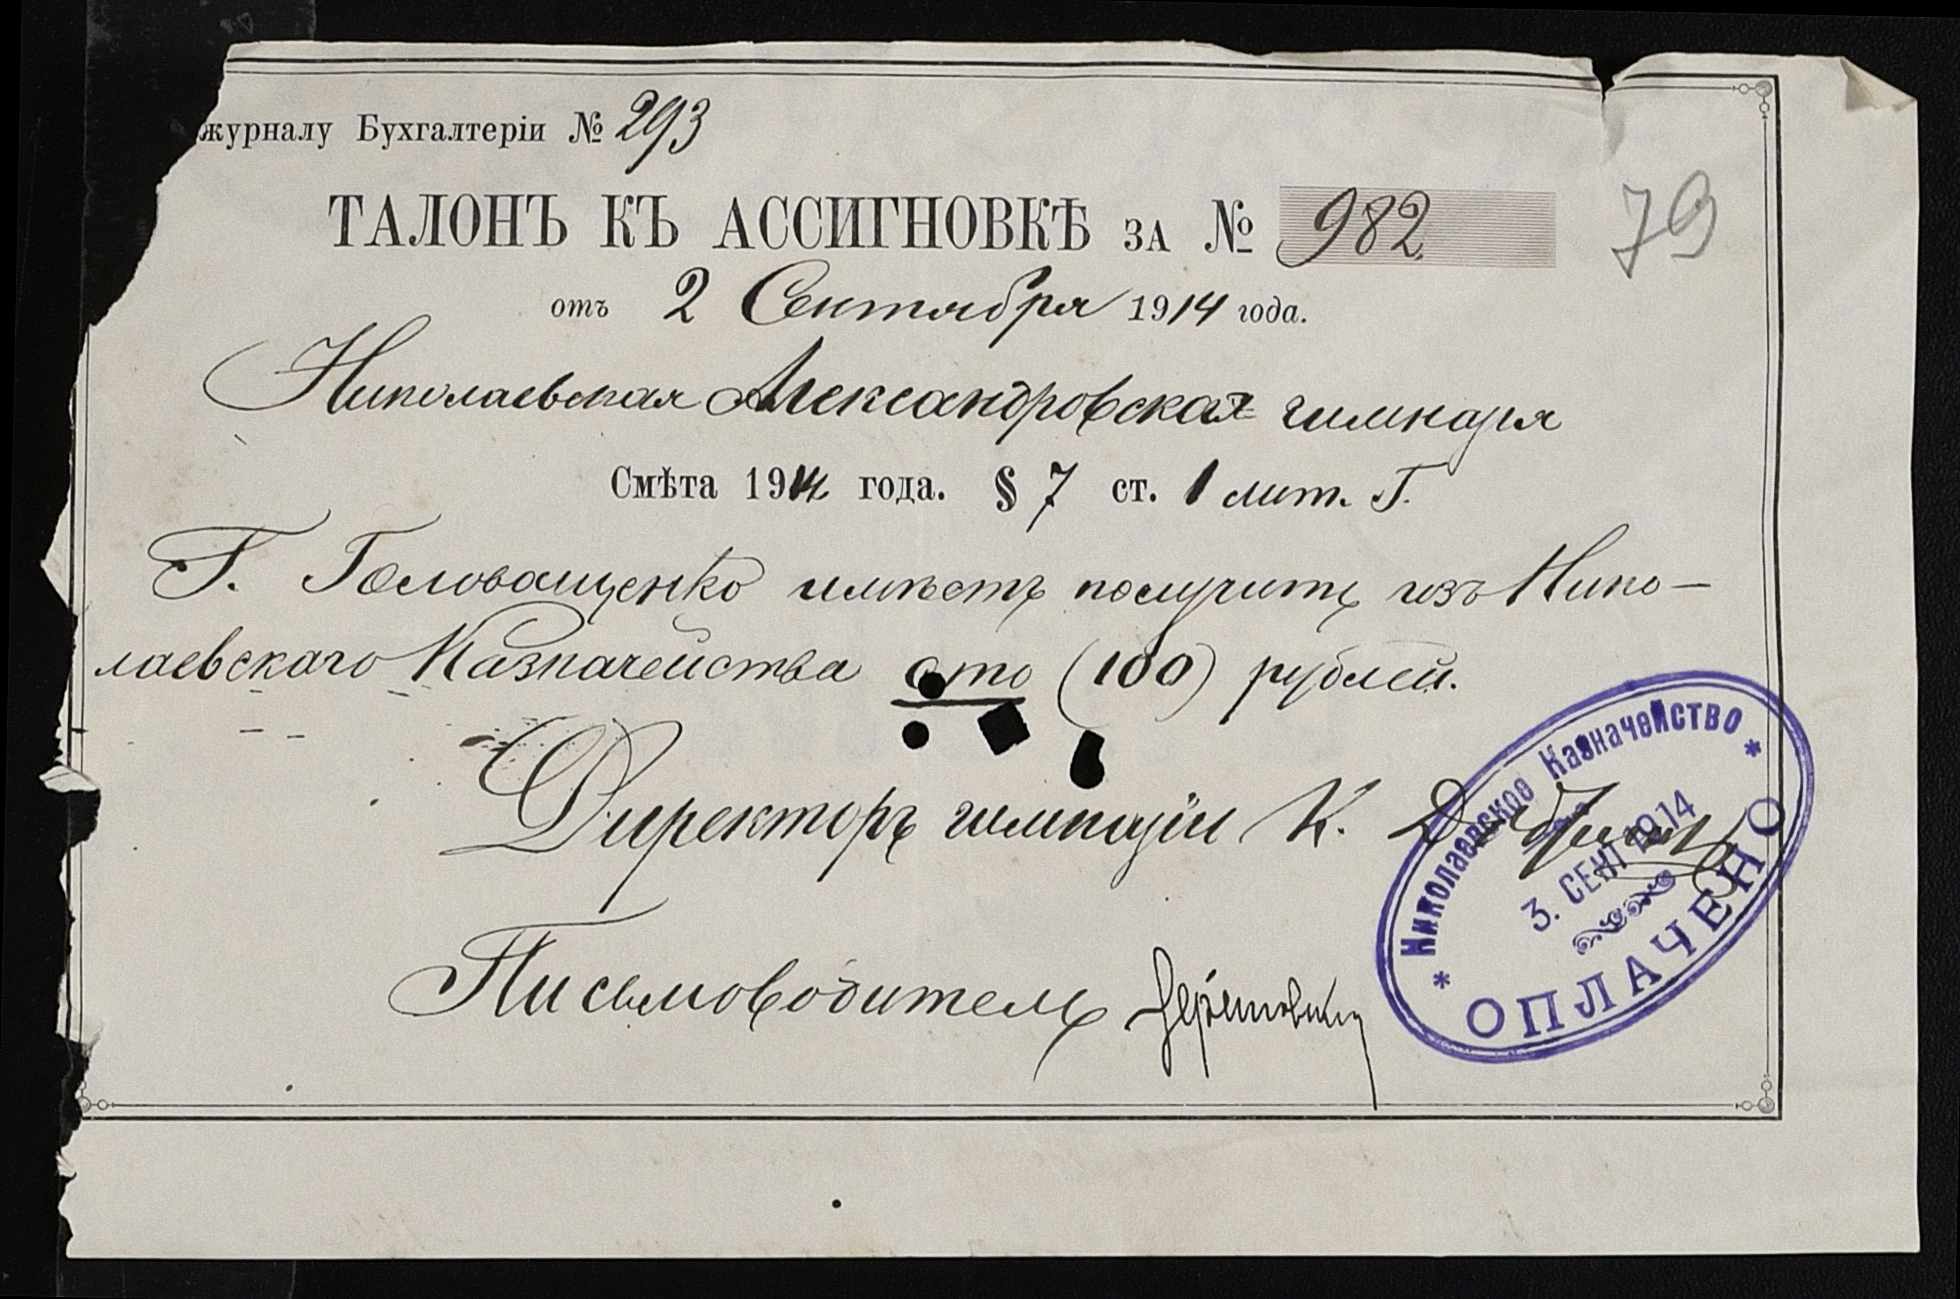 журналу Бухгалтеріи № 293
ТАЛОНЪ КЪ АССИГНОВКѢ ЗА № 982
79
отъ 2 Сентября 1914 года.
Николаевская Александровская гимназія
Смѣта 1914 года. § 7 ст. 1 лит. Г.
Г. Головащенко имѣетъ получить изъ Нико-
лаевскаго Казначейства сто (100) рублей.
Директоръ гимназіи К.
Письмоводитель
Николаевское Казначейство
3. СЕНТ 1914
ОПЛАЧЕНО